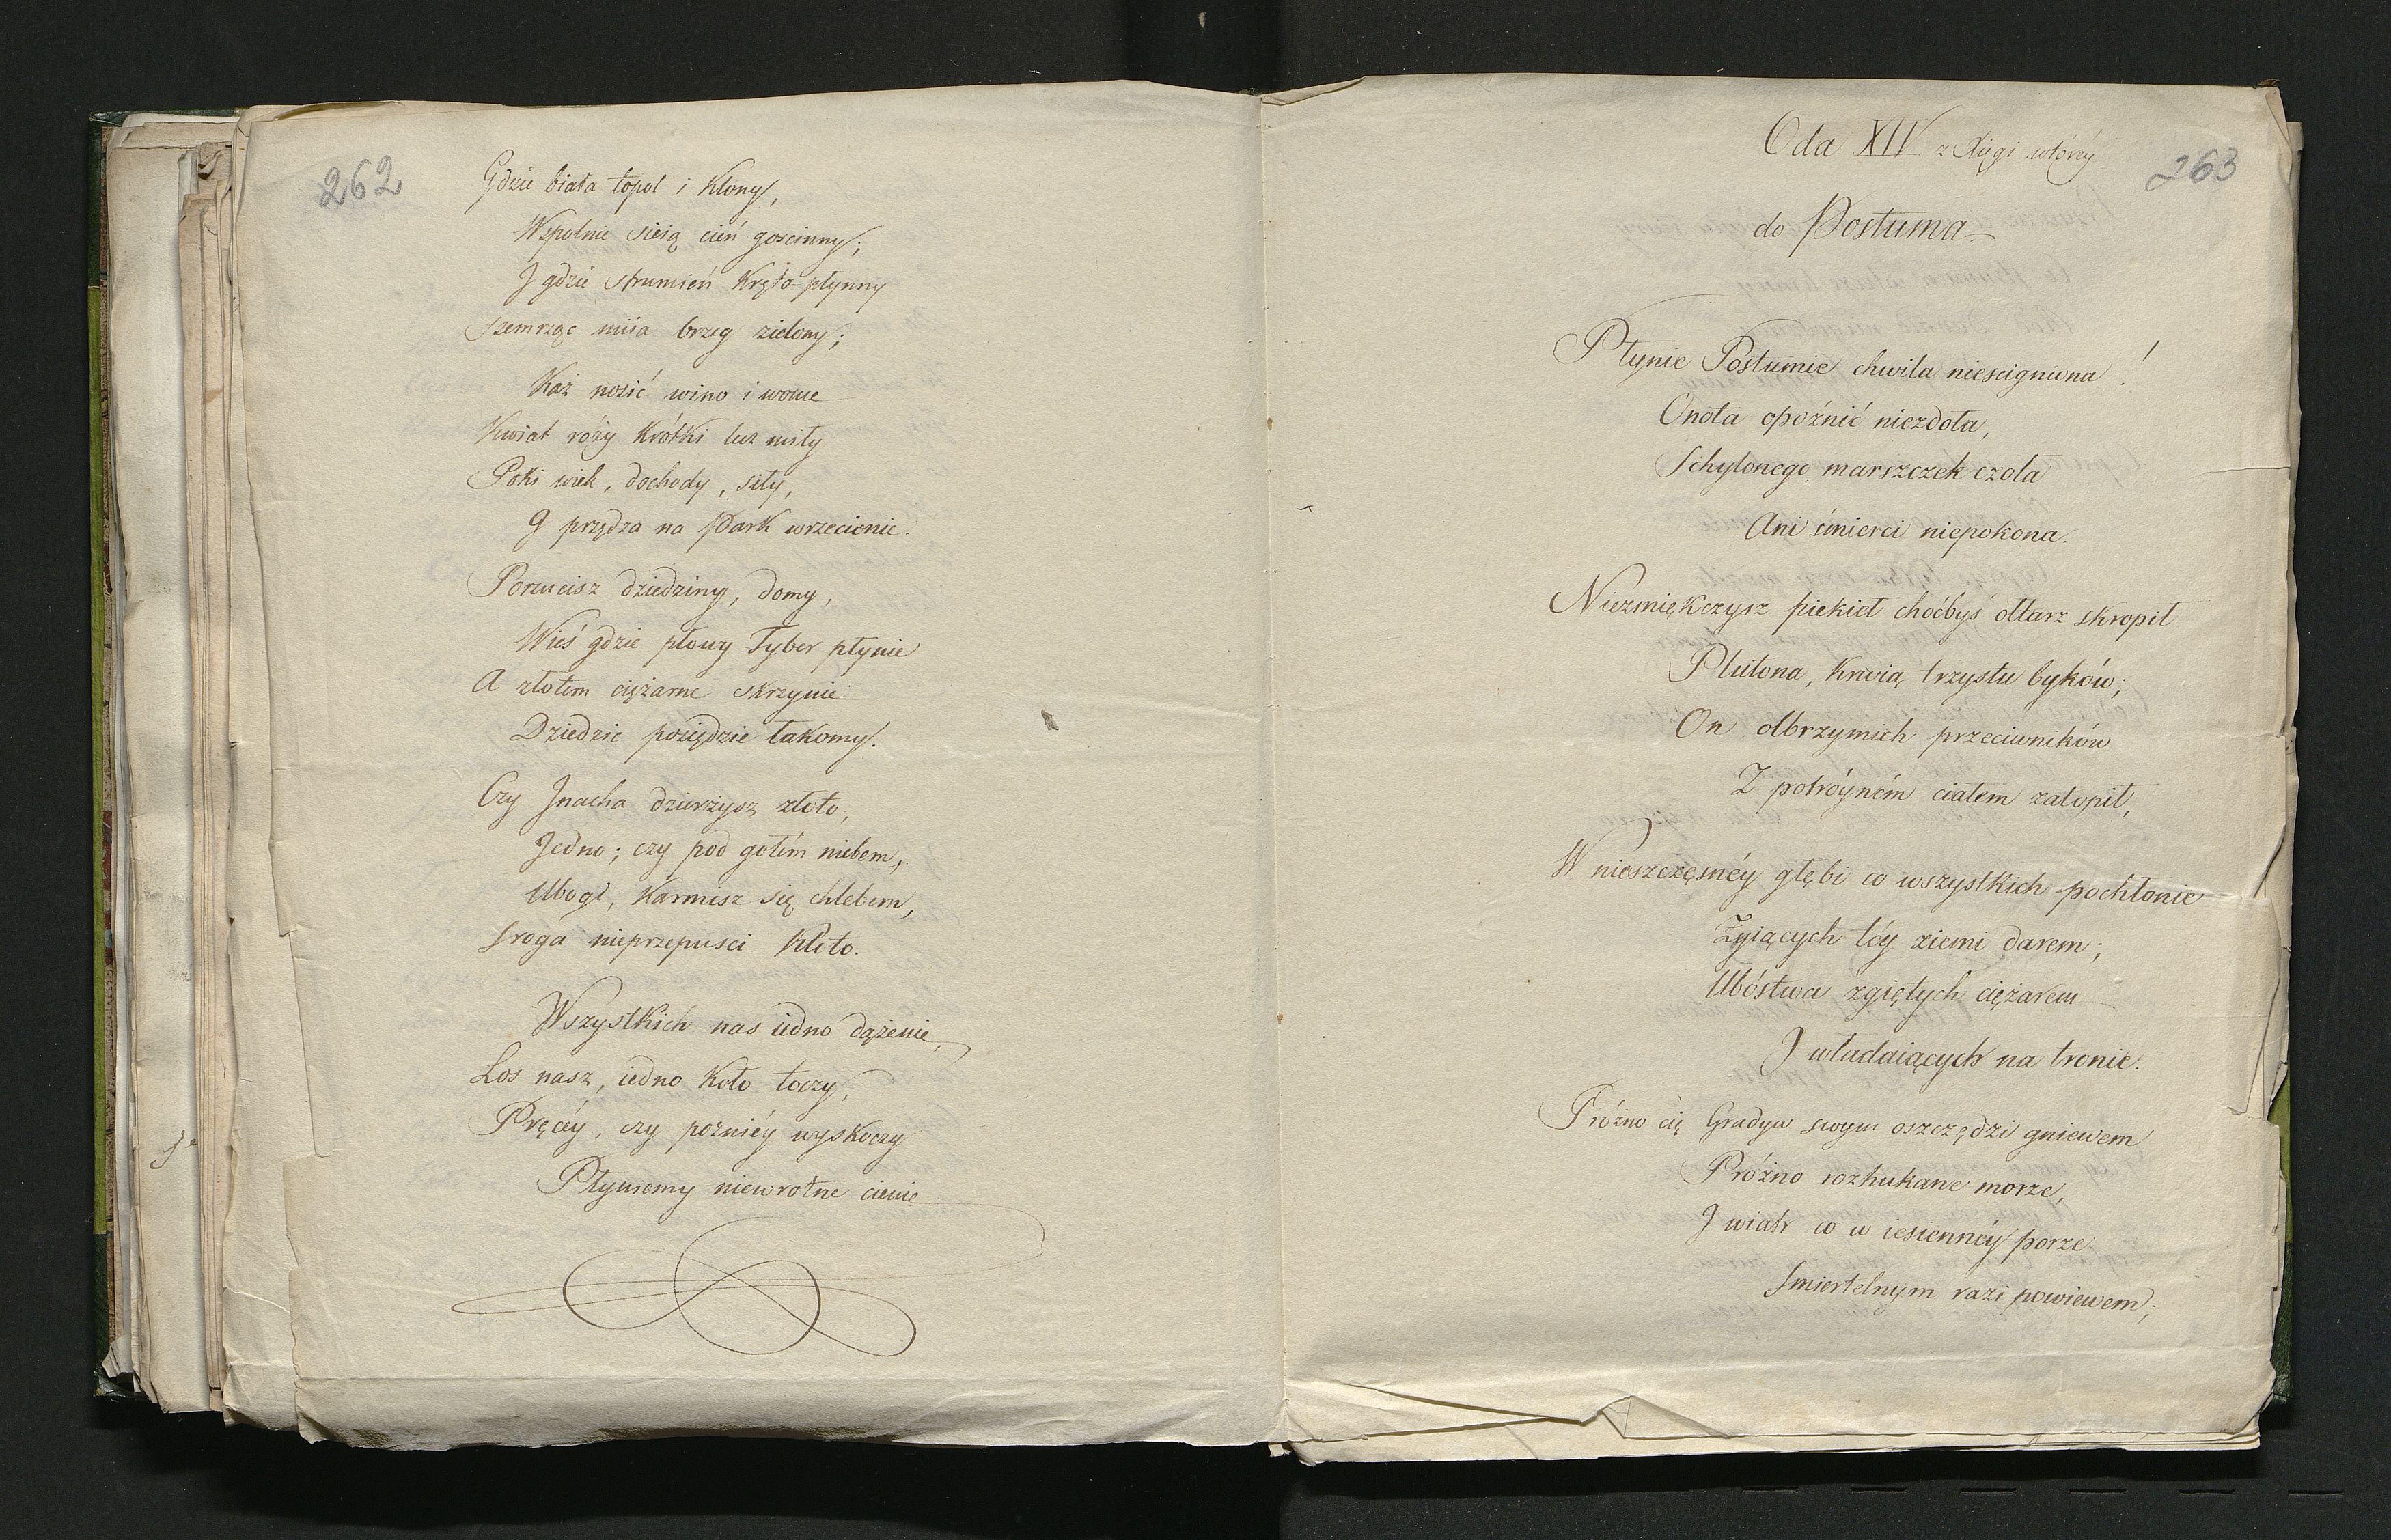 262
Gdzie biała topol i klony,
Wspolnie sieią cień goscinny;
I gdzie strumień kręto-płynny
Szemrząc miia brzeg zielony;
Każ nosić wino i wonie
Kwiat róży krótki lecz miły
Poki wiek, dochody, siły,
I przędza na Park wrzecienie.
Porzucisz dziedziny, domy,
Wieś gdzie płowy Tyber płynie
A złotem ciężarne skrzynie
Dziedzic posiędzie łakomy.
Czy Inacha dzierżysz złoto,
Jedno; czy pod gołém niebem,
Ubogi, karmisz się chlebem,
Sroga nieprzepusci Kloto.
Wszystkich nas iedno dążenie,
Los nasz, iedno koło toczy,
Pręcéy, czy poźniéy wyskoczy
Płyniemy niewrotne cienie
263
Oda XIV z xięgi wtóréy
do Postuma
Płynie Postumie chwila niescigniona!
Cnota opoźnić niezdoła,
Schylonego marszczek czoła
Ani śmierci niepokona.
Niezmiękczysz piekieł choćbyś ołtarz skropił
Plutona, krwią trzystu byków;
On olbrzymich przeciwników
Z potróyném ciałem zatopił,
W nieszczęsnéy głębi co wszystkich pochłonie
Żyiących téy ziemi darem;
Ubóstwa zgiętych ciężarem
I władaiących na tronie.
Próżno cię Gradyw swym oszczędzi gniewem
Próżno rozhukane morze,
I wiatr co w iesiennéy porze
Smiertelnym razi powiewem;